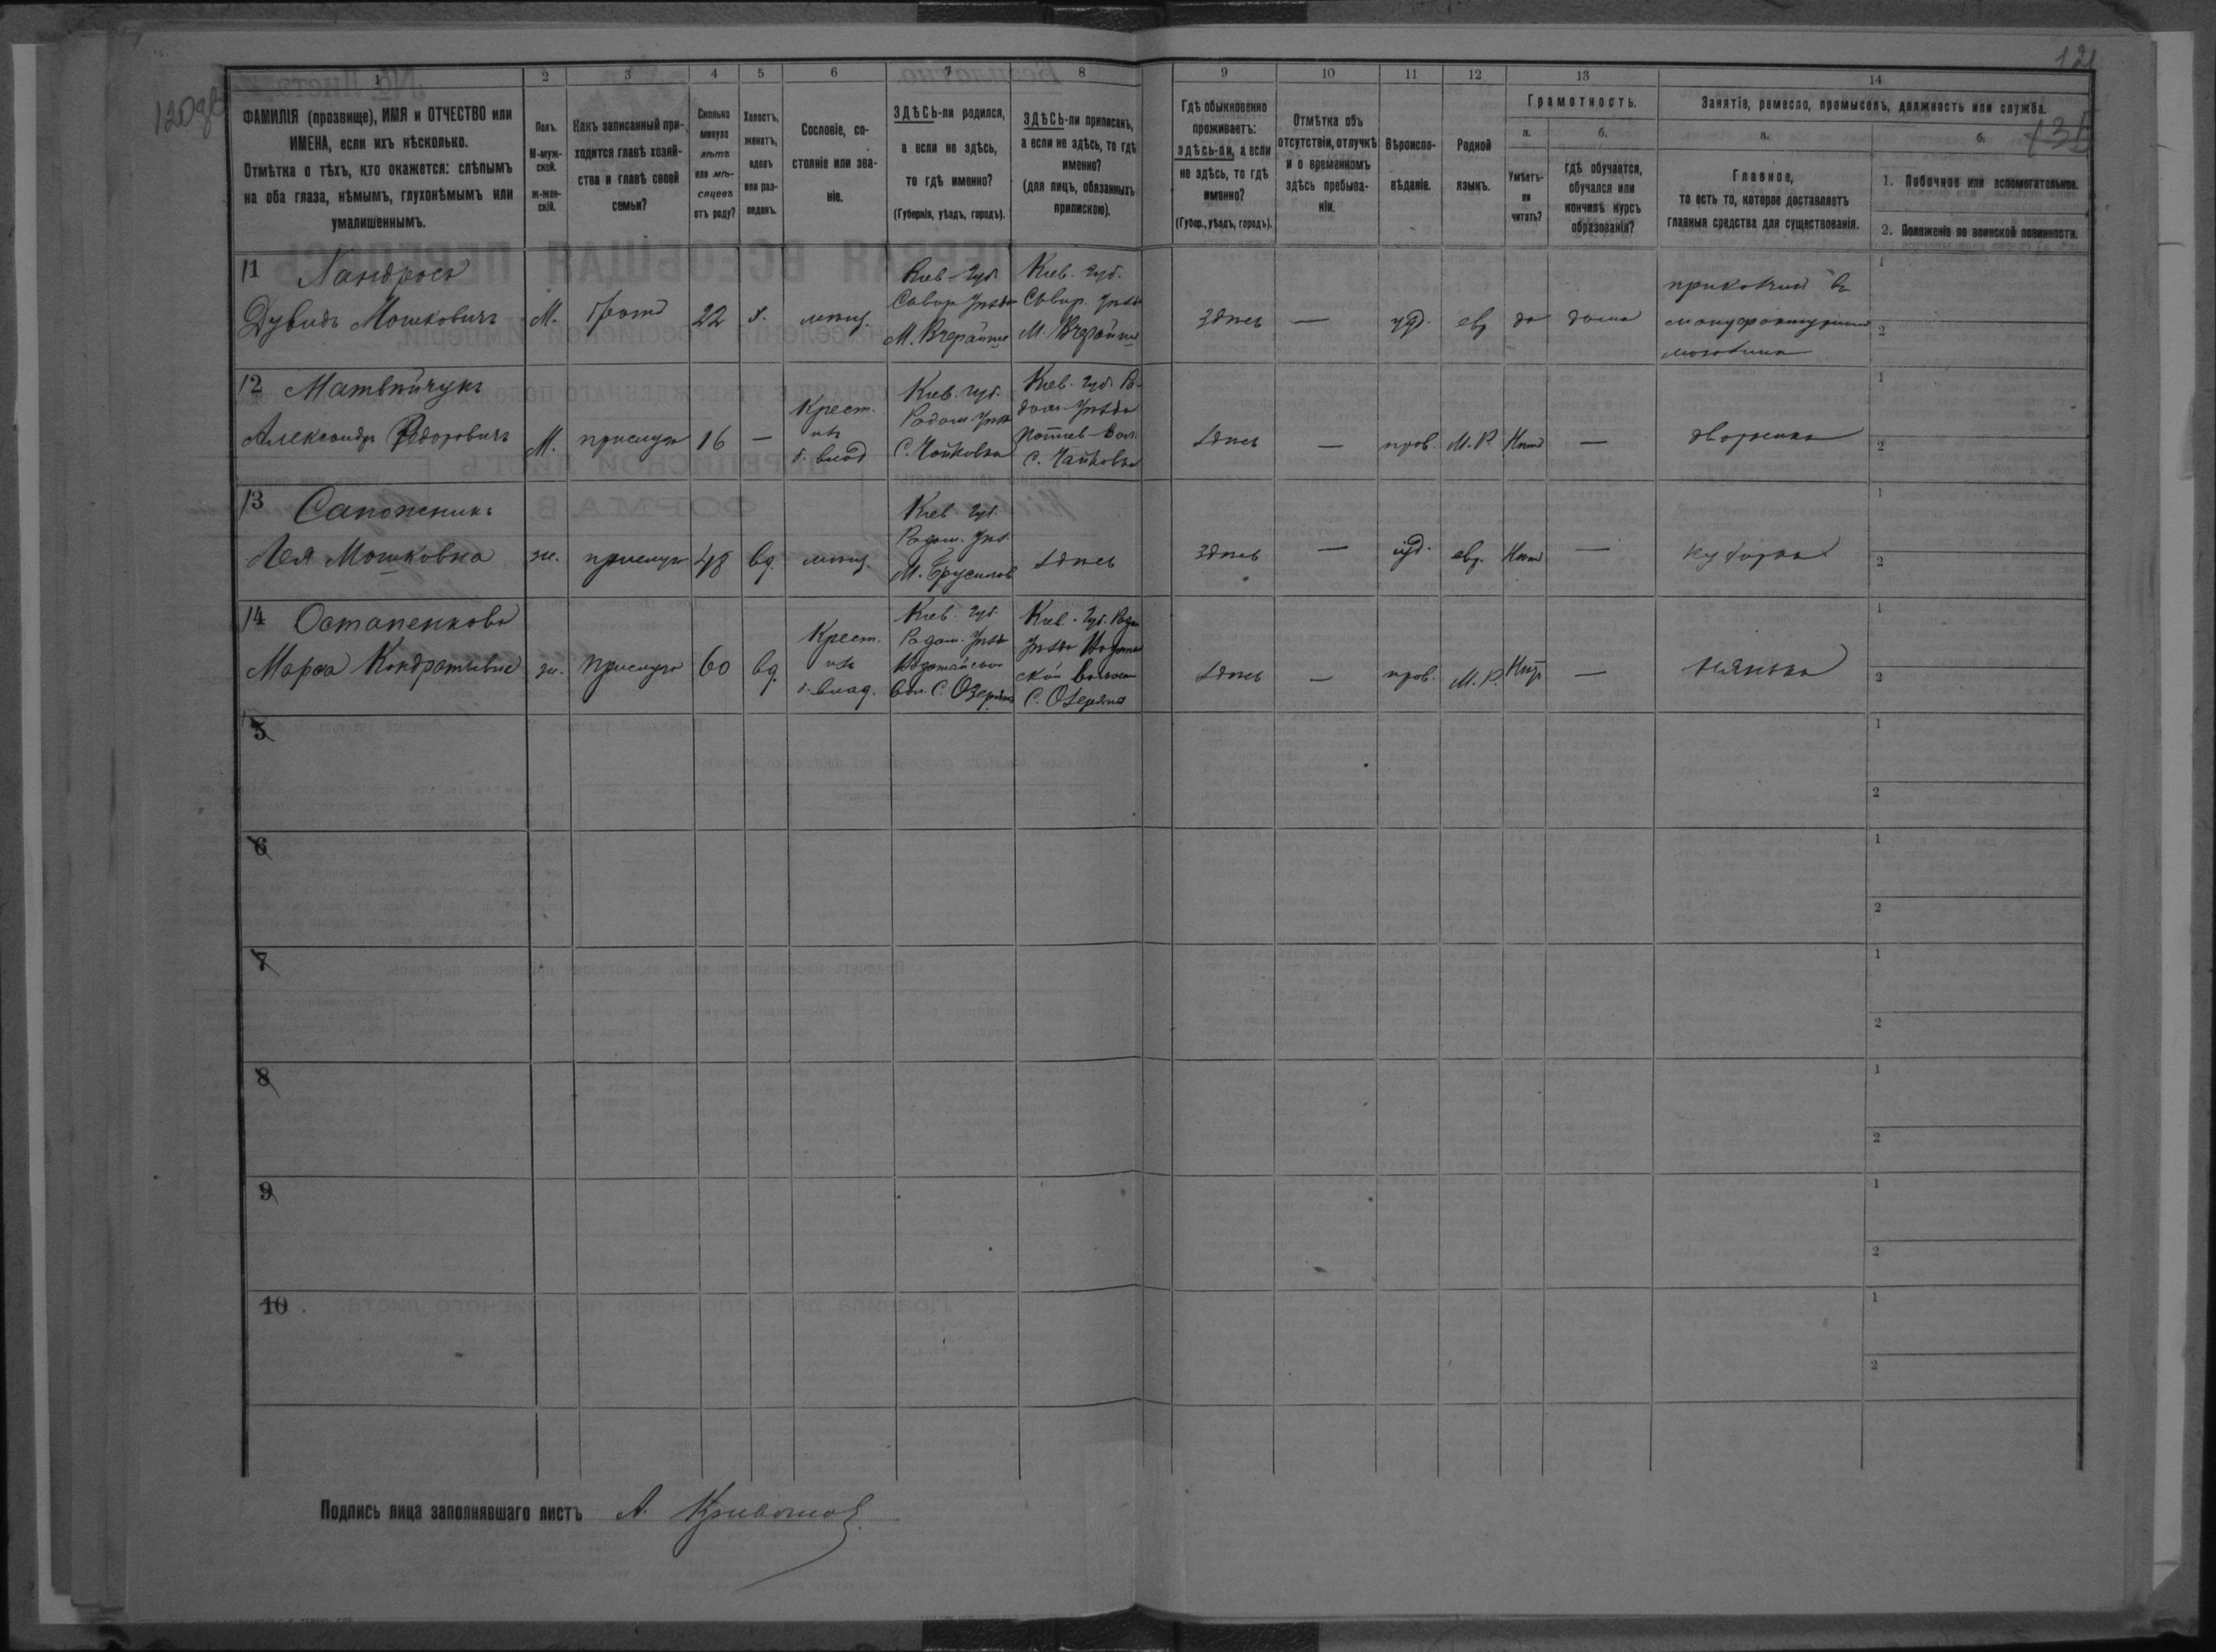 121
13
1
2
3
4
5
6
7
8
9
10
11
12
13
14
ФАМИЛІЯ (прозвище), ИМЯ и ОТЧЕСТВО или
ИМЕНА, если ихъ нѣсколько.
Отмѣтка о тѣхъ, кто окажется: слѣпымъ
на оба глаза, нѣмымъ, глухонѣмымъ или
умалишеннымъ.
Полъ.
М-муж-
ской.
ж-жен-
скій.
Какъ записанный при-
ходится главѣ хозяй-
ства и главѣ своей
семьи?
Сколько
минуло
лѣтъ
или мѣ-
сяцевъ
отъ роду?
Холостъ,
женатъ,
вдовъ
или раз-
веденъ.
Сословіе, со-
стояніе или зва-
ніе.
ЗДѢСЬ-ли родился,
а если не здѣсь,
то гдѣ именно?
(Губернія, уѣздъ, городъ).
ЗДѢСЬ-ли приписанъ,
а если не здѣсь, то гдѣ
именно?
(для лицъ, обязанныхъ
припискою).
Гдѣ обыкновенно
проживаетъ:
здѣсь-ли, а если
не здѣсь, то гдѣ
именно?
(Губер., уѣздъ, городъ).
Отмѣтка объ
отсутствіи, отлучкѣ
и о временномъ
здѣсь пребыва-
ніи.
Вѣроиспо-
вѣданіе.
Родной
языкъ.
Грамотность.
а.
Умѣетъ-
ли
читать?
б.
гдѣ обучается,
обучался или
кончилъ курсъ
образованія?
Занятіе, ремесло, промыселъ, должность или служба.
а.
Главное,
то есть то, которое доставляетъ
главныя средства для существованія.
б.
1. Побочное или вспомогательное.
2. Положеніе по воинской повинности.
11
Дувидъ Мошковичъ
М.
22
х.
мѣщ.
Кіев. губ.
Сквир. уѣзда
М. Вчерайше
Кіев. губ.
Сквир. уѣзда
М. Вчерайше
здѣсь
—
іуд.
евр
да
дома
прикащикъ въ
мануфактурномъ
магазинѣ
1
2
12 Матвѣйчукъ
Александръ Ѳедоровичъ
М.
прислуга
16
—
Крест.
изъ
б. влад
Кіев. губ.
Радом. уѣзда
С. Чайковка
Кіев. губ. Ра-
дом. уѣзда
Потіев. вол.
С. Чайковка
здѣсь
—
прав.
М.Р.
Нѣтъ
—
дворникъ
1
2
13 Сапожникъ
Лея Мошковна
ж.
прислуга
48
вд.
мѣщ.
Кіев. губ.
Радом. уѣз.
М. Брусилов
здѣсь
здѣсь
—
іуд.
евр.
Нѣтъ
—
кухарка
1
2
14 Остапенкова
Марѳа Кондратьевна
ж.
прислуга
60
вд.
Крест.
изъ
б. влад.
Кіев. губ.
Радом. уѣзда
вол. С. Озеряны
Кіев. губ. Радом
уѣзда
ской волости
С. Озеряны
здѣсь
—
прав.
М.Р.
Нѣтъ
—
нянька
1
2
5
1
2
6
1
2
7
1
2
8
1
2
9
1
2
10
1
2
Подпись лица заполнявшаго листъ